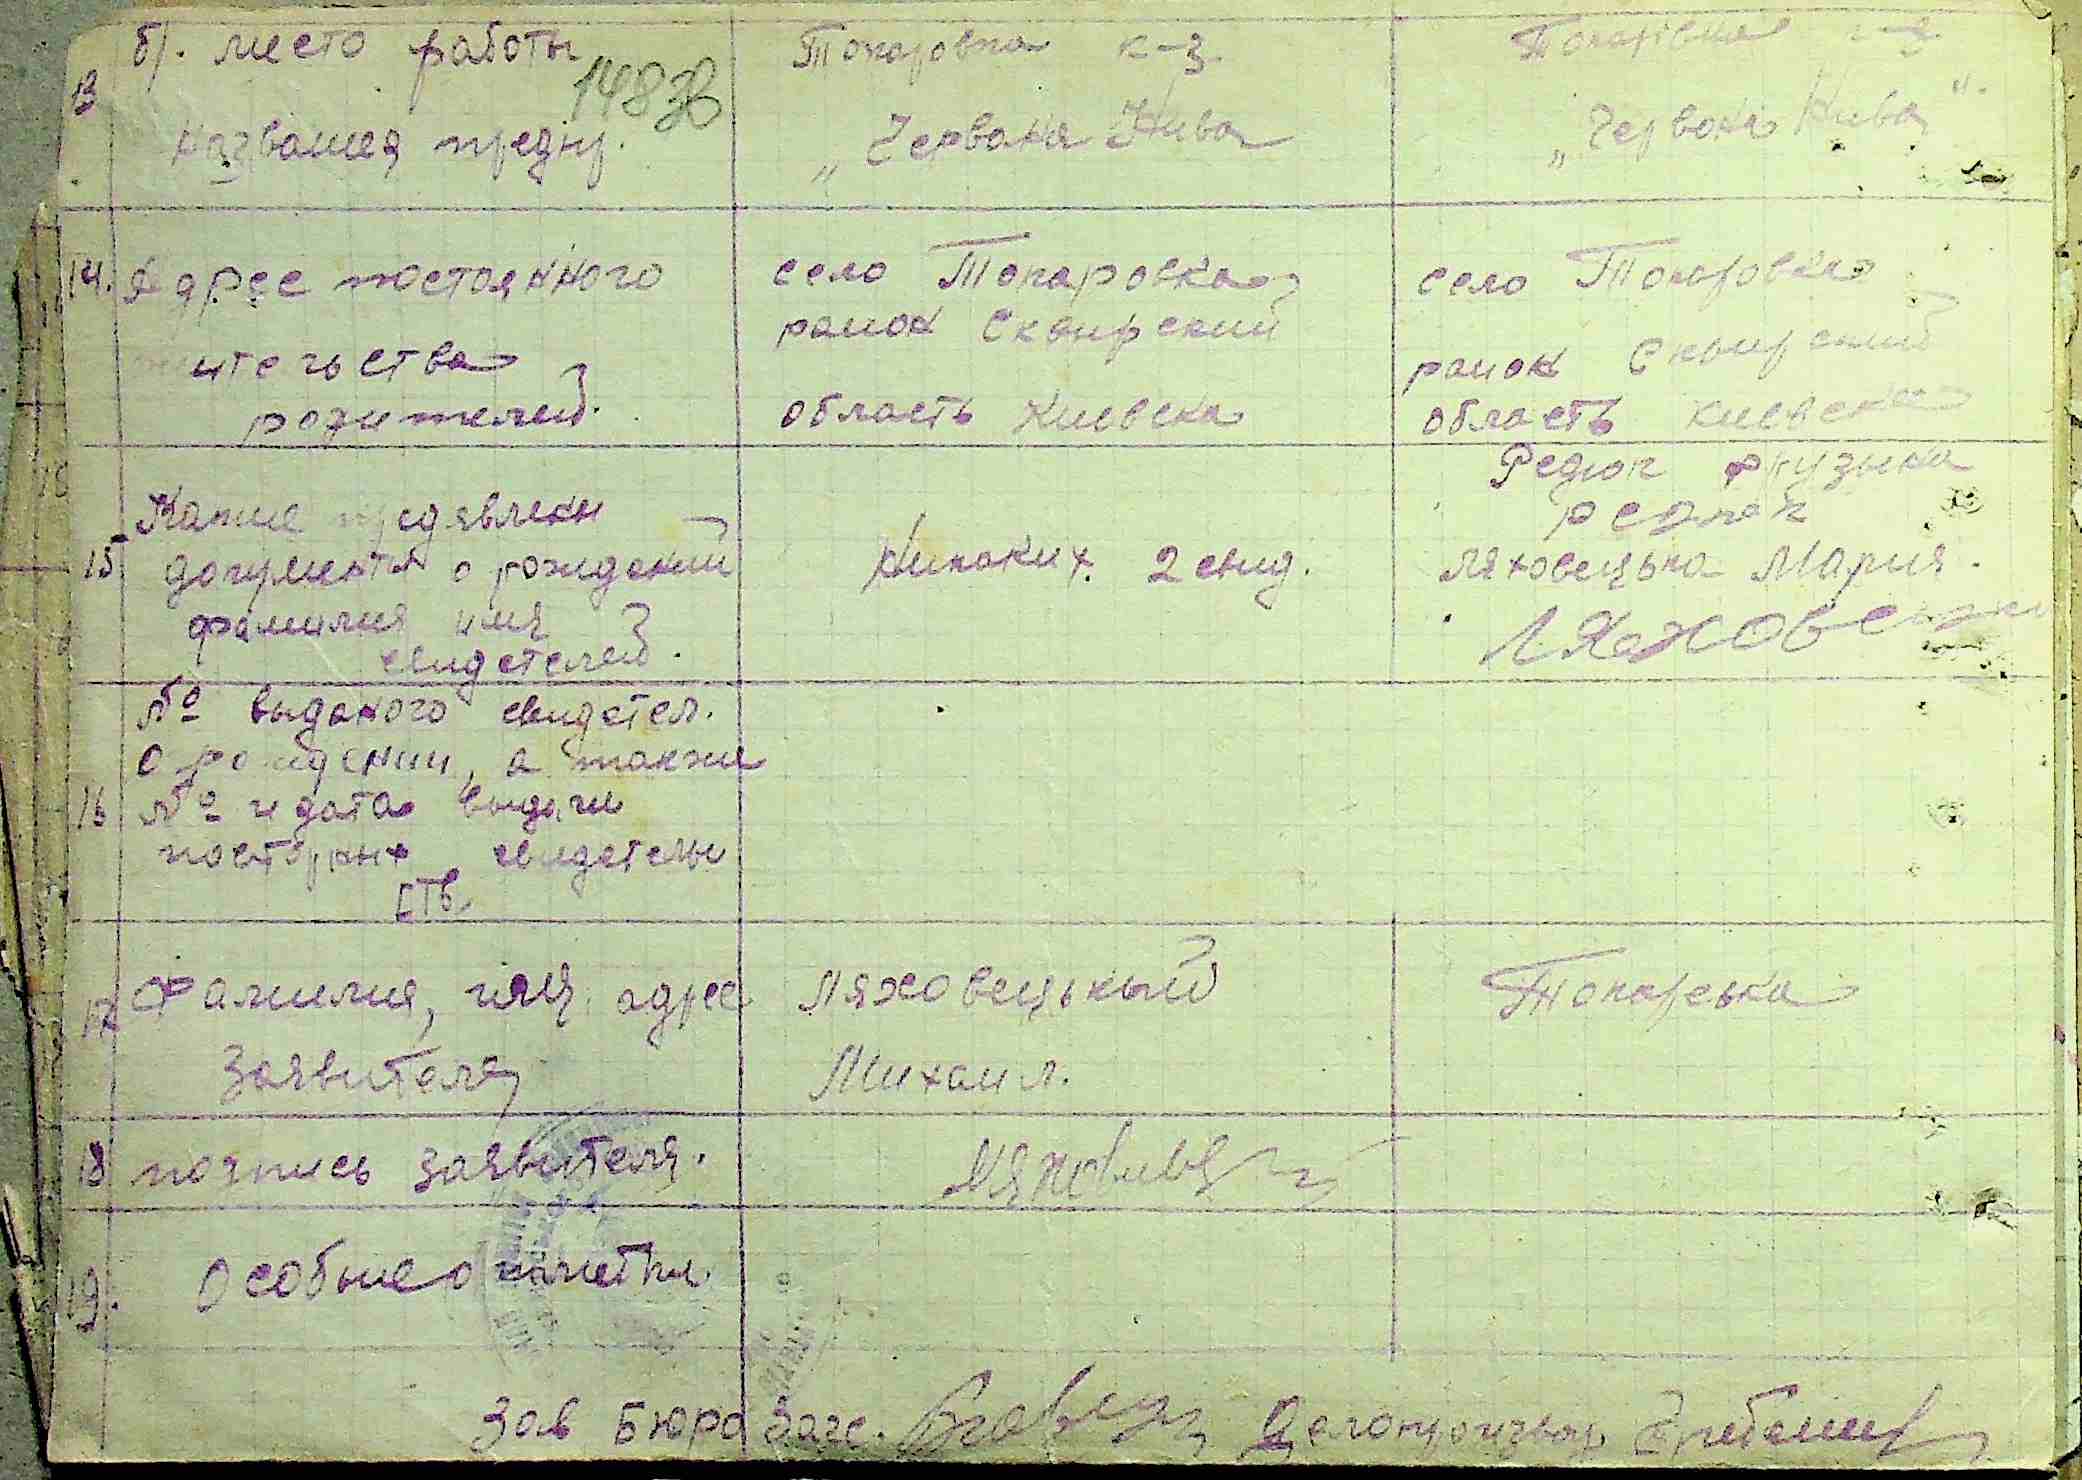 13 б). место работы
148 зв
название предпр.
Токаровка к-з
„Червона Нива
Токаровка к-з
„Червона Нива".
14. Адрес постоянного
жительства
родителей.
село Токаровка
район Сквирский
область Киевска
село Токаровка
район Сквирский
область Киевска
15 Какие предявлени
документи о рождении
фамилия имя
свидетелей.
Никаких. 2 свид.
Редюк
Редюк
Ляховецька Мария.
Ляховецки
16 № выданого свидетел.
о рождении, а также
№ и дата выдачи
повторных свидетель
ств.
17 Фамилия, имя, адрес
Заявителя
Ляховецькый
Михаил.
Токаревка
18 подпись заявителя.
19. Особые отметки.
Зав Бюро Загс.
Делопроизвод.